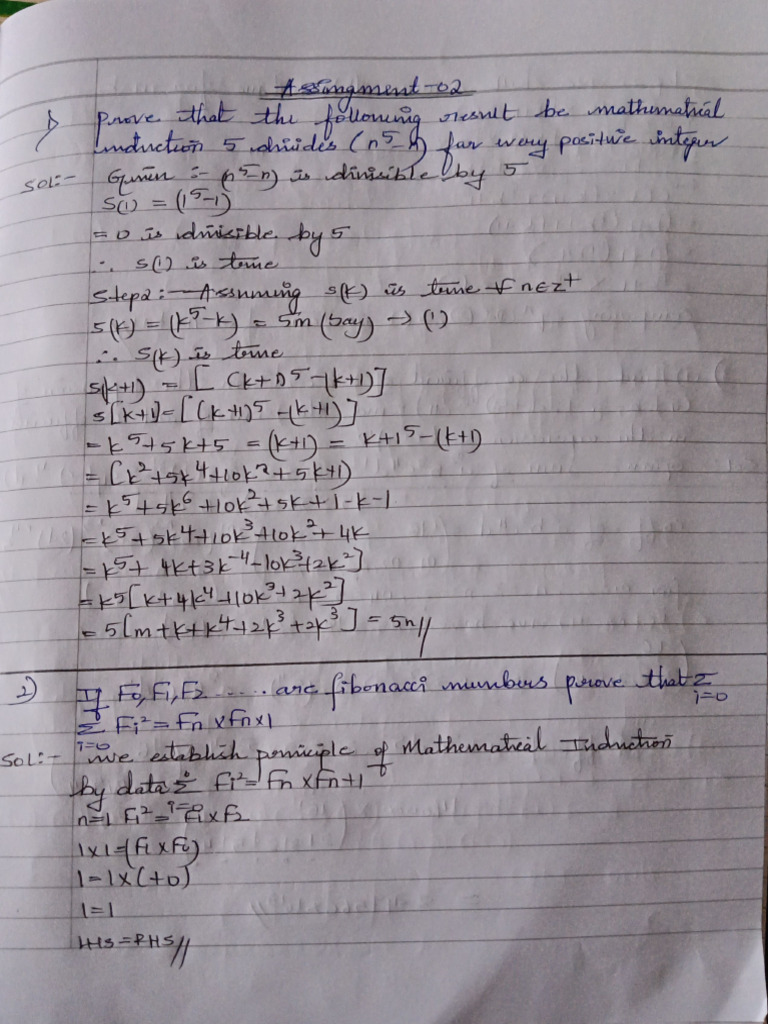 Assingment-02
1) Prove that the following result be mathematical
induction 5 divides (n⁵-n) for every positive integer
SOL:- Given :- (n⁵-n) is divisible by 5
S(1) = (1⁵-1)
= 0 is divisible by 5
∴ S(1) is true
Step2:- Assuming S(k) is true ∀ n∈z⁺
S(k) = (k⁵-k) = 5m (Say) → (1)
∴ S(k) is true
S(k+1) = [ (k+1)⁵-(k+1)]
S[k+1]=[(k+1)⁵-(k+1)]
= k⁵+5k+5 = (k+1) = k+1⁵-(k+1)
= (k²+5k⁴+10k²+5k+1)
= k⁵+5k⁶+10k²+5k+1-k-1
= k⁵+5k⁴+10k³+10k²+4k
= k⁵+ 4k+3k⁻⁴-10k³+2k²]
= k5[k+4k⁴+10k³+2k²]
= 5[m+k+k⁴+2k³+2k³] = 5n//
2) If F0, F1, F2 ..... are fibonacci numbers prove that Σ i=0
Σ i=0 Fi² = Fn x Fn x1
SOL:- We establish principle of Mathematical Induction
by data Σ i=0 Fi² = Fn x Fn+1
n=1 Fi² = F1 x F2
1x1=(F1 x F2)
1=1x(+0)
1=1
LHS=RHS//